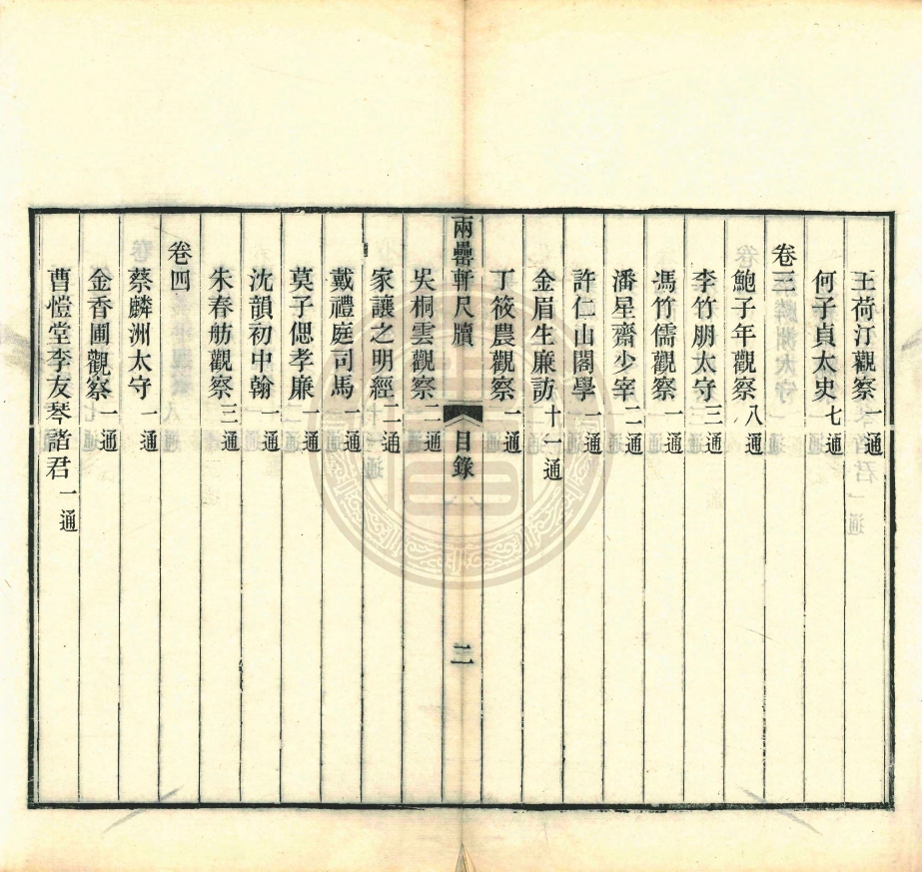 王荷汀觀察一通
何子貞太史七通
卷三
鮑子年觀察八通
李竹朋太守三通
馮竹儒觀察一通
潘星齋少宰二通
許仁山閣學一通
金眉生廉訪十一通
丁筱農觀察一通
兩罍軒尺牘 目錄 二
吳桐雲觀察二通
家讓之明經二通
戴禮庭司馬一通
莫子偲孝廉一通
沈韻初中翰一通
朱春舫觀察三通
卷四
蔡麟洲太守一通
金香圃觀察一通
曹愷堂李友琴諸君一通